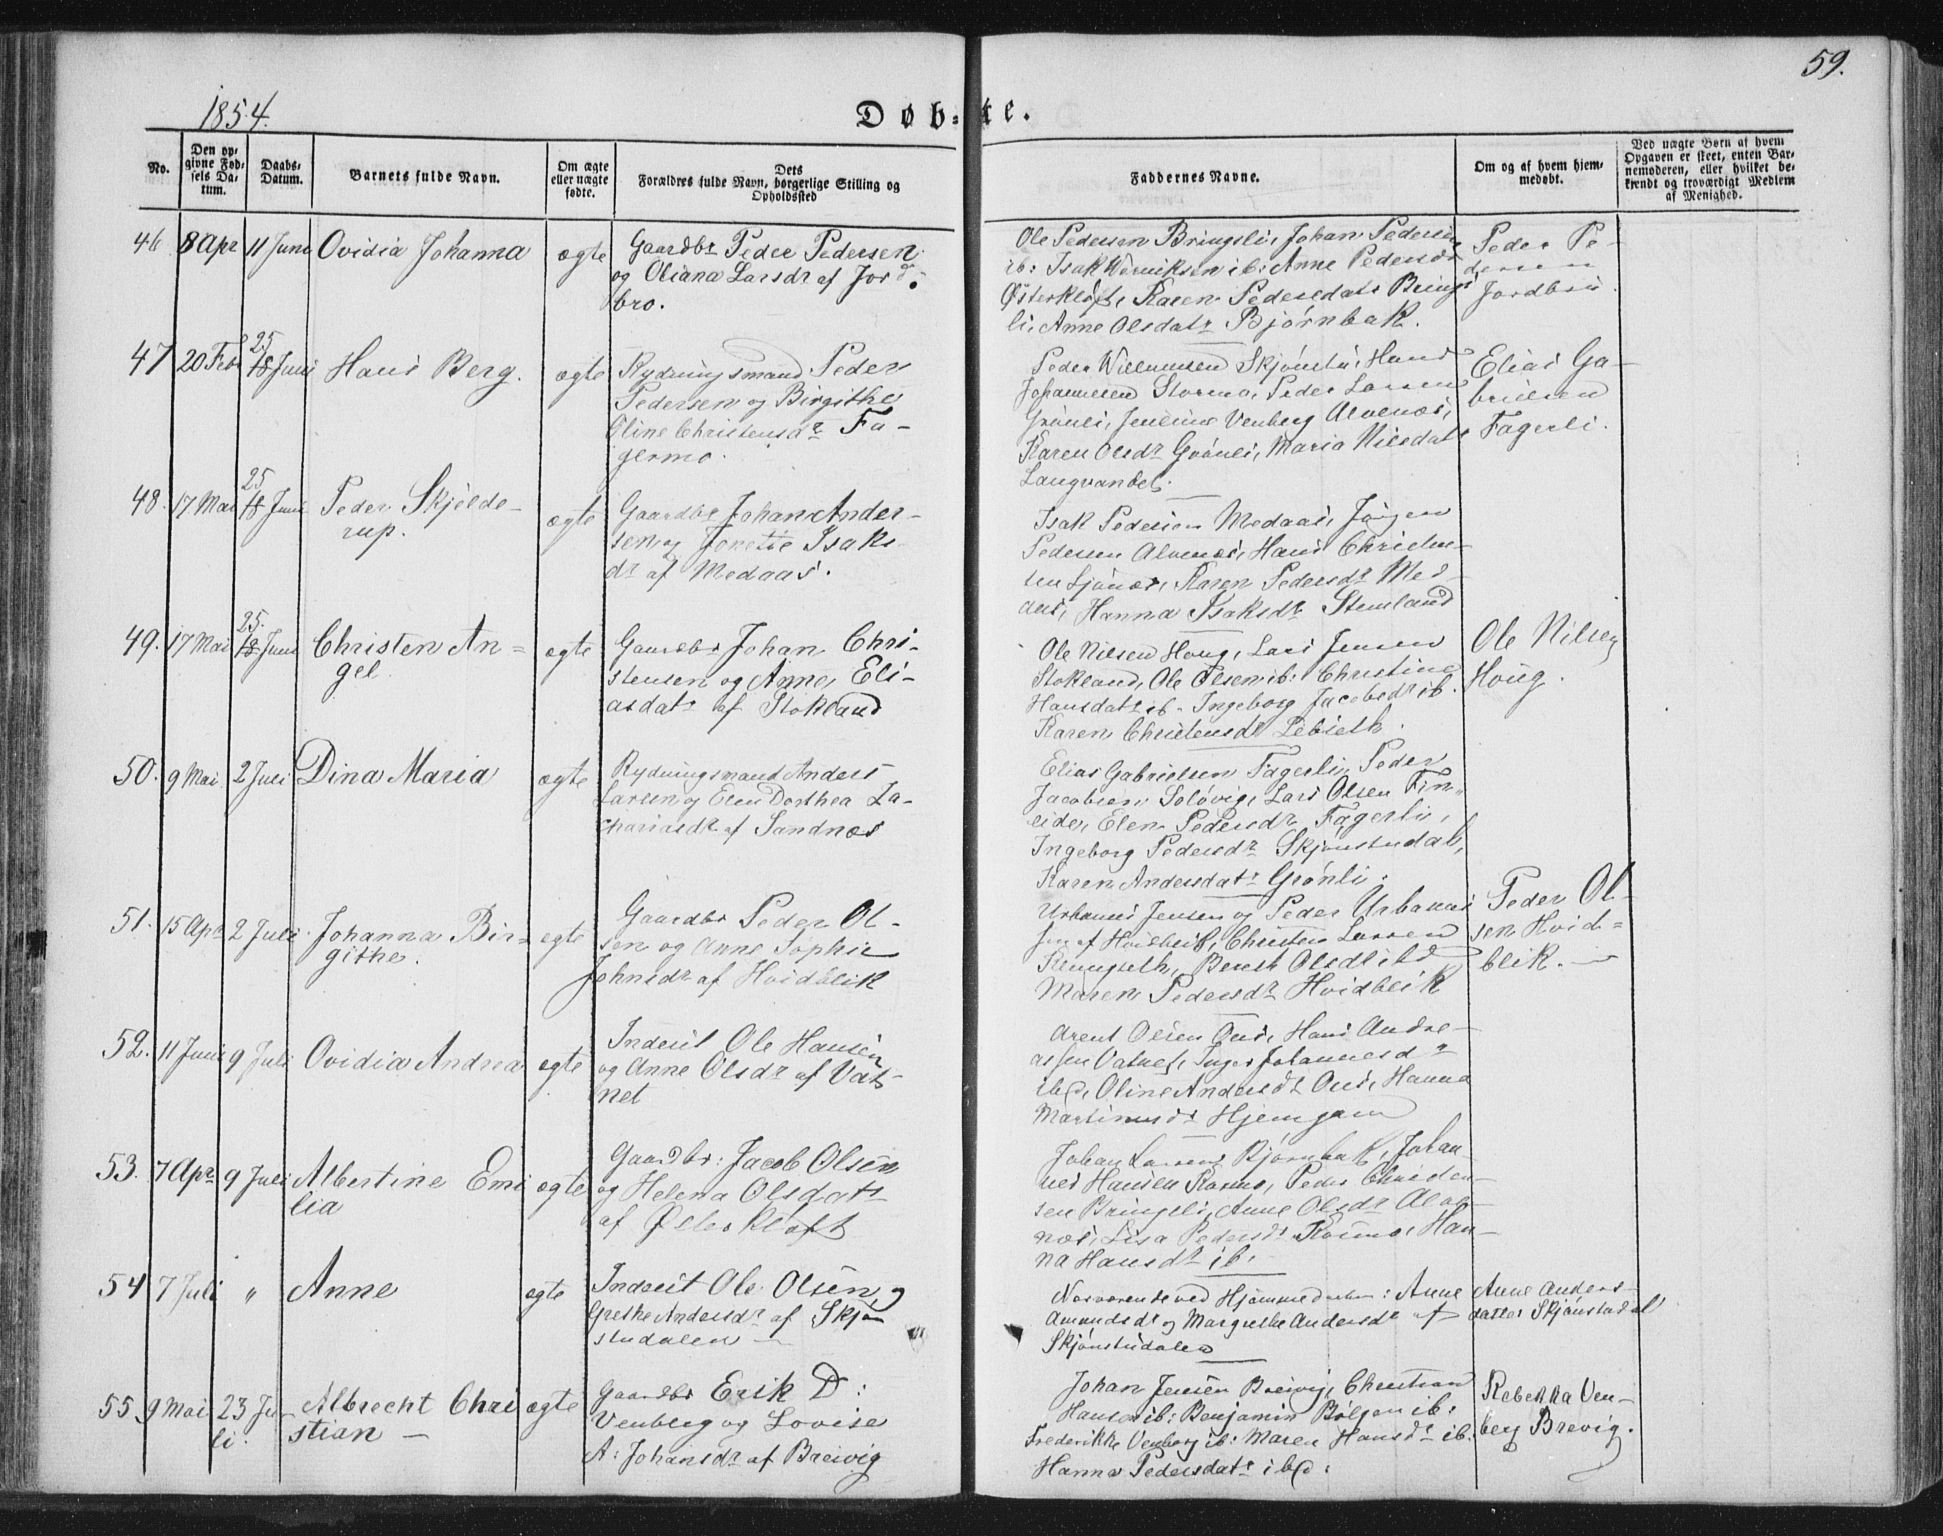 59.
1854.
Døb-te.
No.
Den op-
givne Fød-
sels Da-
tum.
Daabs-
Datum.
Barnets fulde Navn.
Om ægte
eller uægte
fødte.
Dets
Forældres fulde Navn, borgerlige Stilling og
Opholdssted
Faddernes Navne.
Om og af hvem hjem-
medøbt.
Ved uægte Børn af hvem
Opgaven er skeet, enten Bar-
nemoderen, eller hvilket be-
kjendt og troværdigt Medlem
af Menighed.
46 8 Apr 11 Juni Ovidia Johanna ægte
Gaardbr Peder Pedersen
og Oliana Larsdr af Jord-
bro.
Ole Pedersen Bringsli, Johan Pedersen
ib: Isak ib: Anne Pedersdr
Østerkløft, Karen Pedersdatr Brings
li, Anne Olsdatr Bjørnbak.
Peder Pe-
dersen
Jordbro.
47 20 Feb 25 18 Juni Hans Berg. ægte
Rydningsmand Peder
Pedersen og Birgithe
Oline Christensdr Fa-
germo.
Peder Willumsen Skjønstu, Hans
Johannesen Stormo, Peder Larsen
Grønli, Venberg Alvenæs,
Karen Olsdr Grønli, Maria Nilsdatr
Langvandet.
Elias Ga-
brielsen
Fagerli.
48. 17 Mai 25 18 Juni Peder Skjelde-
rup. ægte
Gaardbr Johan Ander-
sen og Isaks-
dr af Medaas.
Isak Pedersen Medaas, Jørgen
Pedersen Alvenæs, Hans Christen-
sen Sjønæs, Karen Pedersdr Med-
aas, Hanna Isaksdr Stemland
49. 17 Mai 25. 18 Juni Christen An-
gel. ægte
Gaardbr Johan Chri-
stensen og Anne Eli-
asdatr af Stokland
Ole Nilsen Houg, Lars Jensen
Stokland, Ole Olsen ib: Christine
Hansdatr ib. Ingeborg Jacobsdr ib.
Karen Christensdr
Ole Nilsen
Houg.
50. 9 Mai 2 Juli Dina Maria ægte
Rydningsmand Anders
Larsen og Elen Dorthea Za-
chariasdr af Sandnæs
Elias Gabrielsen Fagerli, Peder
Jacobsen Soløvig, Lars Olsen Fin-
eide, Elen Pedersdr Fagerli,
Ingeborg Pedersdr Skjønstudal,
Karen Andersdatr Grønli.
51. 15 Apr 2 Juli Johanna Bir-
githe. ægte
Gaardbr Peder Ol-
sen og Anne Sophie
Johnsdr af Hvidblik
Urbanus Jensen og Peder Urbanus
sen af Hvidblik, Christen Larsen
Olsdr ibd
Maren Pedersdr Hvidblik
Peder Ol-
sen Hvid-
blik.
52. 11 Juni 9 Juli Ovidia Andrea ægte
Inderst Ole Hansen
og Anne Olsdr af Vat-
net
Arent Olsen Hans Andre-
assen Vatnet, Inger Johannesdr
ibd, Oline Andersdr Hanna
Martinusdr Hjemgam
53. 7 Apr 9 Juli Albertine Emi
lia ægte
Gaardbr: Jacob Olsen
og Helena Olsdatr
af Østerkløft
Johan Larsen Bjørnbak, Johan-
nes Hansen Kosmo, Peder Christen-
sen Bringsli, Anne Olsdr Alve-
næs, Lisa Pedersdr Kosmo, Han-
na Hansdr ib.
54 7 Juli " Anne ægte
Inderst Ole Olsen og
Grethe Andersdr af Skjøn
studalen
Nærværende ved Hjemmedaaben: Anne
Amundsdr og Margrethe Andersdr af
Skjønstudalen
Anne Anders-
datter Skjønstudal
55. 9 Mai 23 Ju-
li. Albrecht Chri
stian ægte
Gaardbr Erik D:
Venberg og Lovise
A: Johansdr af Breivig
Johan Jensen Breivig, Christian
Hansen ib: Benjamin ib:
Frederikke Venberg ib: Maren Hansdr ib:
Hanna Pedersdatr ibd:
Rebekka Ven-
berg Brevig.